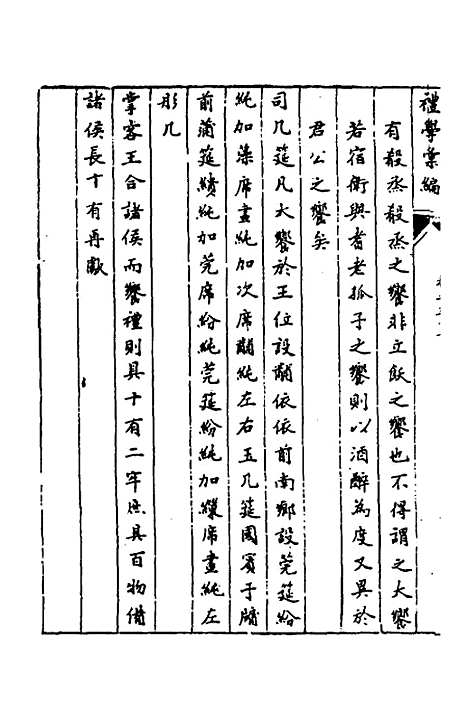 禮學彙編
有殽烝殽烝之饗非立飫之饗也不得謂之大饗
若宿衛與耆老孤子之饗則以酒醉為度又異於
君公之饗矣
司几筵凡大饗於王位設黼依依前南鄉設莞筵紛
純加藻席畫純加次席黼純左右玉几筵國賓于牖
前蒲筵繢純加莞席紛純莞筵紛純加繅席畫純左
彤几
掌客王合諸侯而饗禮則具十有二牢庶具百物備
諸侯長十有再獻